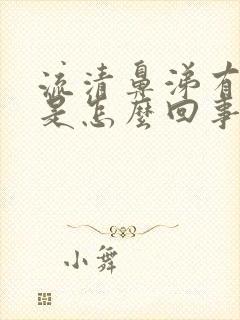 流清鼻涕有
是怎麼回事
小舞